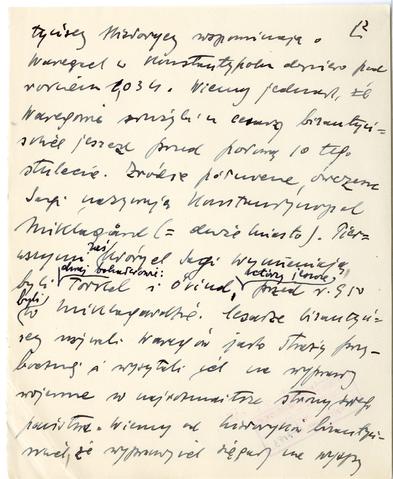 12
tyńscy historycy wspominają o
Waregach w Konstantynopolu dopiero pod
rokiem 1034. Wiemy jednak, że
Waregowie służyli cesarzy bizantyń=
skich jeszcze przed połową 10 tego
stulecia. Źródła północne, ówczesne
Sagi nazywają Konstantynopol
Miklagård (= duże miasto). Pier=
wszymi zaś, których Sagi wymieniają,
dwaj bohaterowie: którzy
byli: Torkel i Övind, przed r. 950
byli w Miklagardzie. Cesarze bizantyń=
scy najęli Waregów jako straż przy=
boczną i wysyłali ich na wyprawy
wojenne w najrozmaitsze strony swego
państwa. Wiemy od historyków bizantyń=
skich, że wyprawy ich sięgały na wyspy